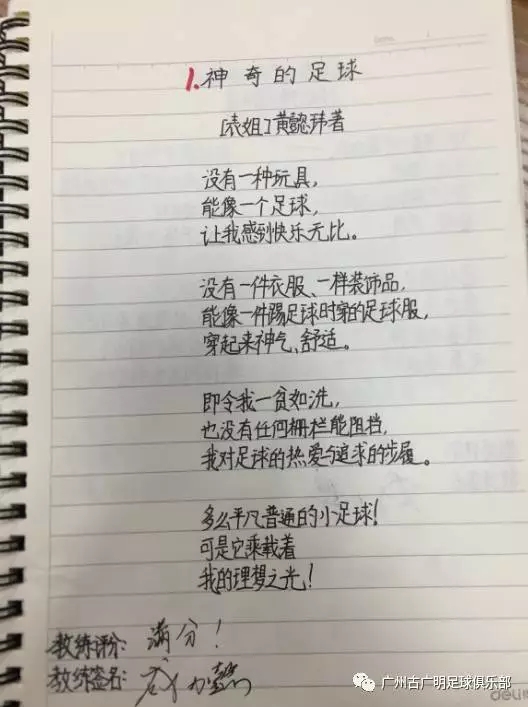 1.神奇的足球
[表姐]黄懿玮著
没有一种玩具，
能像一个足球，
让我感到快乐无比。
没有一件衣服、一样装饰品，
能像一件踢足球时穿的足球服，
穿起来神气、舒适。
即令我一贫如洗，
也没有任何栅栏能阻挡，
我对足球的热爱与追求的步履。
多么平凡普通的小足球！
可是它乘载着
我的理想之光！
教练评分：满分！
教练签名：
广州古广明足球俱乐部
deli